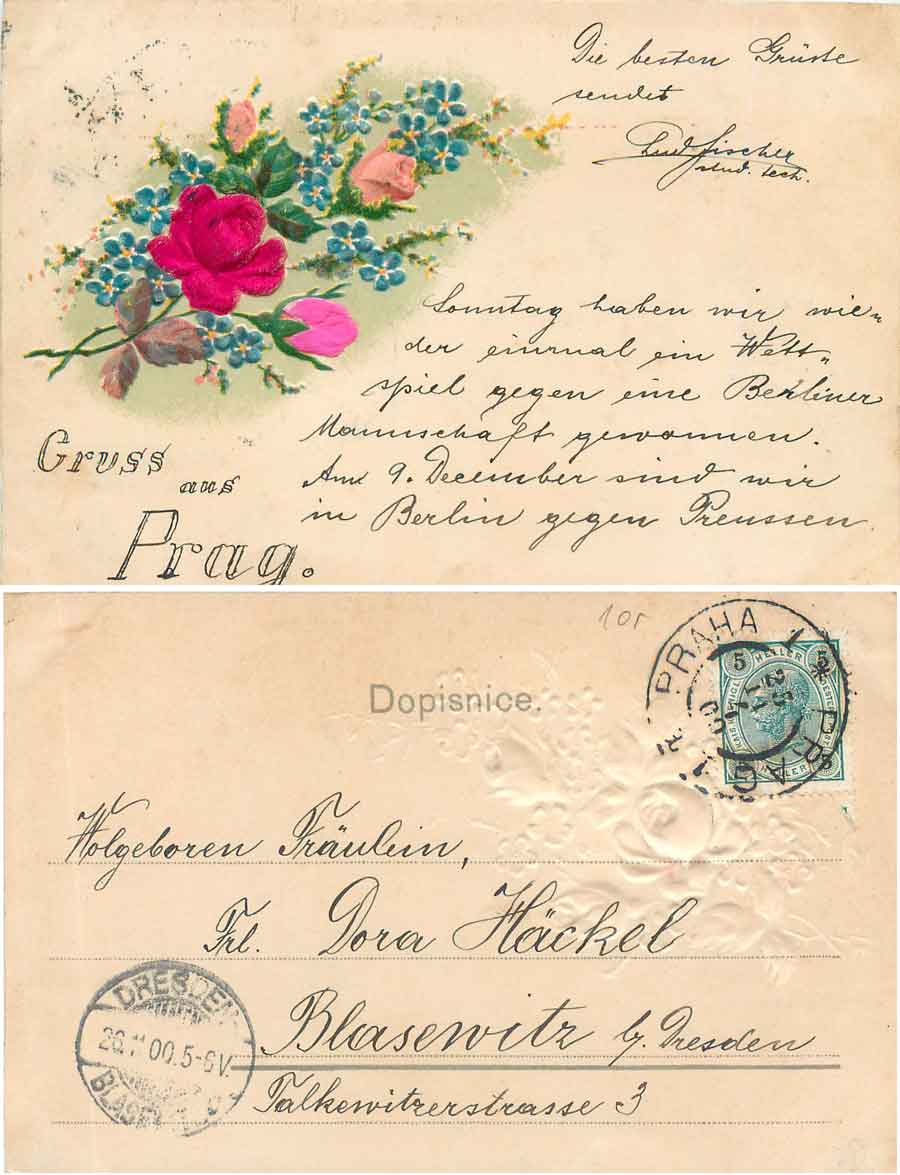 Die besten Grüsse
sendet
Fischer
stud. tech.
Sonntag haben wir wie„
der einmal ein Wett„
spiel gegen eine Berliner
Mannschaft gewonnen.
Am 9. December sind wir
in Berlin gegen Preussen.
Gruss
aus
Prag.
10r
PRAHA 1
PRAG 1
25
11
00
5 HELLER 5
Dopisnice.
Wolgeboren Fräulein,
Frl. Dora Häckel
Blasewitz b/ Dresden
Talkewitzerstrasse 3
DRESDEN
26.11.00.5-6V.